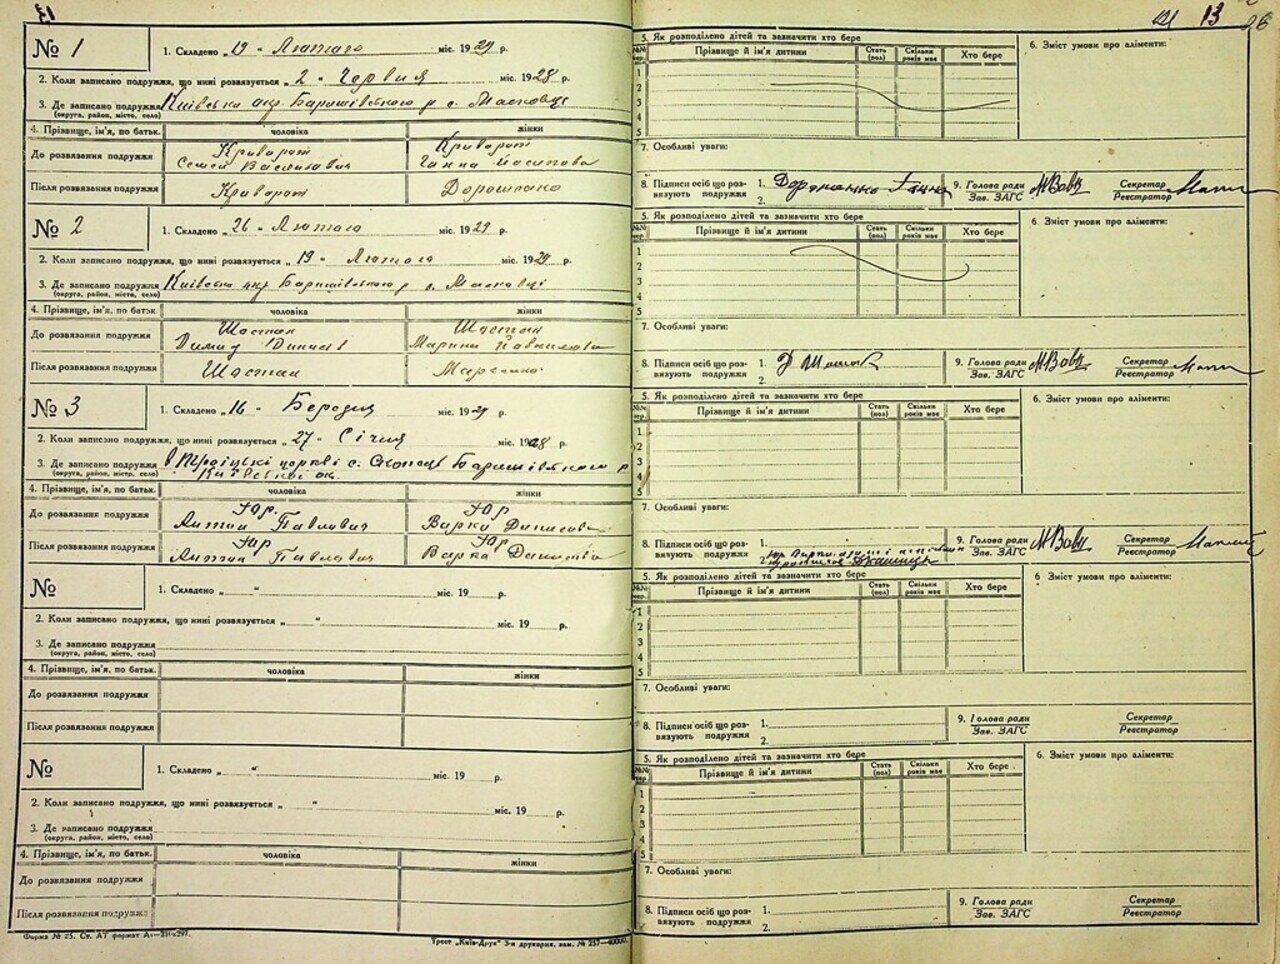 13
№ 1
1. Складено „ 19 " Лютого міс. 1929 р.
2. Коли записано подружжя, що нині розвязується „ 2 " Червня міс. 1928 р.
3. Де записано подружжя Київська окр. Баришівського р с. Масковці
(округа, район, місто, село)
4. Прізвище, ім'я, по батьк. чоловіка жінки
До розвязання подружжя Криворот Семен Василович Криворот Ганна Йосипова
Після розвязання подружжя Криворот Дорошенко
5. Як розподілено дітей та зазначити хто бере
Прізвище й ім'я дитини Стать (пол) Скільки років має Хто бере
1
2
3
4
5
6. Зміст умови про аліменти:
7. Особливі уваги:
8. Підписи осіб що розвязують подружжя 1. Дорошенко Ганна
2.
9. Голова ради
Зав. ЗАГС
Секретар
Реєстратор
№ 2
1. Складено „ 26 " Лютого міс. 1929 р.
2. Коли записано подружжя, що нині розвязується „ 19 " Лютого міс. 1929 р.
3. Де записано подружжя Київська окр Баришівського р с. Масковці
(округа, район, місто, село)
4. Прізвище, ім'я, по батьк. чоловіка жінки
До розвязання подружжя Шостак Шостак Марина
Після розвязання подружжя Шостак
5. Як розподілено дітей та зазначити хто бере
Прізвище й ім'я дитини Стать (пол) Скільки років має Хто бере
1
2
3
4
5
6. Зміст умови про аліменти:
7. Особливі уваги:
8. Підписи осіб що розвязують подружжя 1.
2.
9. Голова ради
Зав. ЗАГС
Секретар
Реєстратор
№ 3
1. Складено „ 16 " Березня міс. 1929 р.
2. Коли записано подружжя, що нині розвязується „ 27 " Січня міс. 1928 р.
3. Де записано подружжя в Троїцькі церкві с. Баришівського р
(округа, район, місто, село) Київської ок.
4. Прізвище, ім'я, по батьк. чоловіка жінки
До розвязання подружжя Юр. Антон Павлович Юр Варка Денисова
Після розвязання подружжя Юр Антон Павлович Юр Варка
5. Як розподілено дітей та зазначити хто бере
Прізвище й ім'я дитини Стать (пол) Скільки років має Хто бере
1
2
3
4
5
6. Зміст умови про аліменти:
7. Особливі уваги:
8. Підписи осіб що розвязують подружжя 1.
2.
9. Голова ради
Зав. ЗАГС
Секретар
Реєстратор
№
1. Складено „ " міс. 19 р.
2. Коли записано подружжя, що нині розвязується „ " міс. 19 р.
3. Де записано подружжя
(округа, район, місто, село)
4. Прізвище, ім'я, по батьк. чоловіка жінки
До розвязання подружжя
Після розвязання подружжя
5. Як розподілено дітей та зазначити хто бере
Прізвище й ім'я дитини Стать (пол) Скільки років має Хто бере
1
2
3
4
5
6 Зміст умови про аліменти:
7. Особливі уваги:
8. Підписи осіб що розвязують подружжя 1.
2.
9. Голова ради
Зав. ЗАГС
Секретар
Реєстратор
№
1. Складено „ " міс. 19 р.
2. Коли записано подружжя, що нині розвязується „ " міс. 19 р.
3. Де записано подружжя
(округа, район, місто, село)
4. Прізвище, ім'я, по батьк. чоловіка жінки
До розвязання подружжя
Після розвязання подружжя
5. Як розподілено дітей та зазначити хто бере
Прізвище й ім'я дитини Стать (пол) Скільки років має Хто бере
1
2
3
4
5
6. Зміст умови про аліменти:
7. Особливі уваги:
8. Підписи осіб що розвязують подружжя 1.
2.
9. Голова ради
Зав. ЗАГС
Секретар
Реєстратор
Трест „Київ-Друк" 3-я друкарня. зам. № 257—40000.